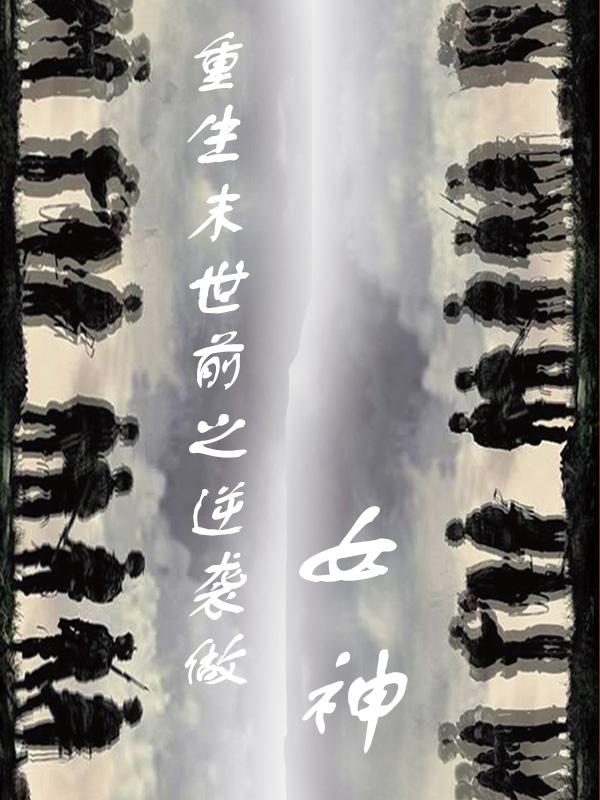 重生末世前之逆袭做
女神